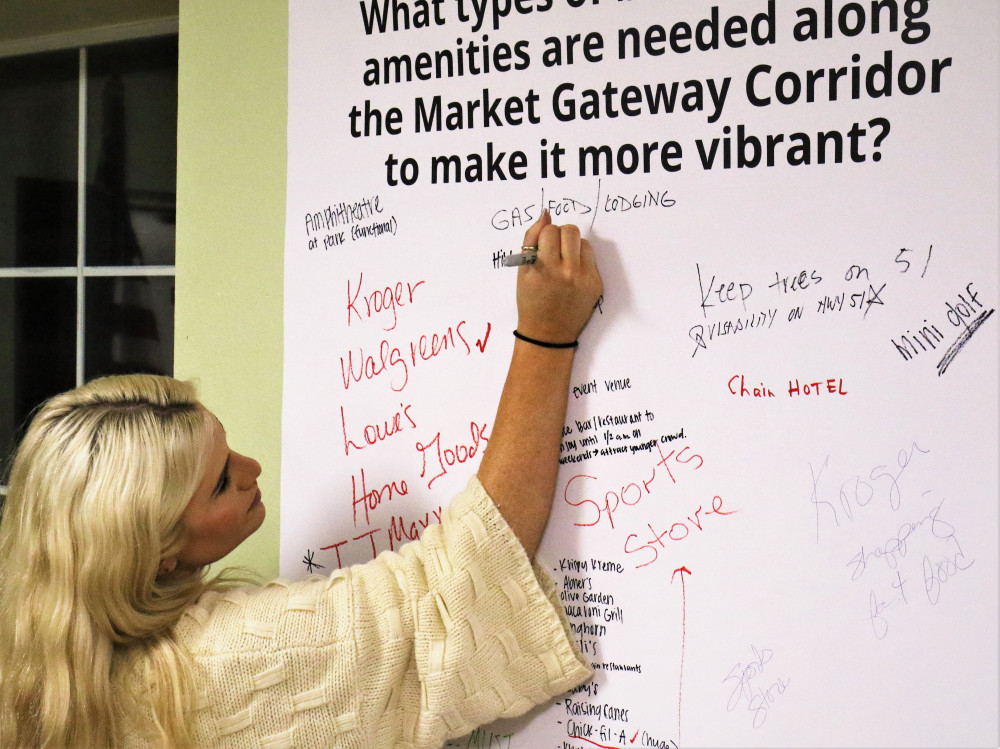 What types
amenities are needed along
the Market Gateway Corridor
to make it more vibrant?
Amphitheatre
at park (functional)
GAS/FOOD/LODGING
Keep trees on 51
VISABILITY ON HWY 51
Mini golf
Kroger
Walgreens ✓
Lowe's
Home Goods
* T J Max
event venue
Bar/restaurant to
until 1/2 am on
weekends → attract younger crowd.
Chain HOTEL
Sports
Store
Kroger
shopping
food
- Krispy Kreme
- Abner's
Olive Garden
Grill
- Raising Canes
- Chick-fil-A ✓ (huge)
Sports
Store